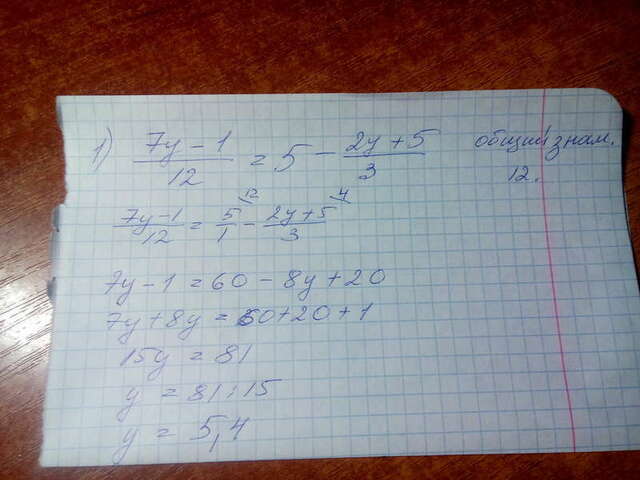 1) (7y-1)/12 = 5 - (2y+5)/3 общий знам. 12.
(7y-1)/12 = 5/1 ^12 - (2y+5)/3 ^4
7y-1 = 60 - 8y + 20
7y + 8y = 60 + 20 + 1
15y = 81
y = 81:15
y = 5,4